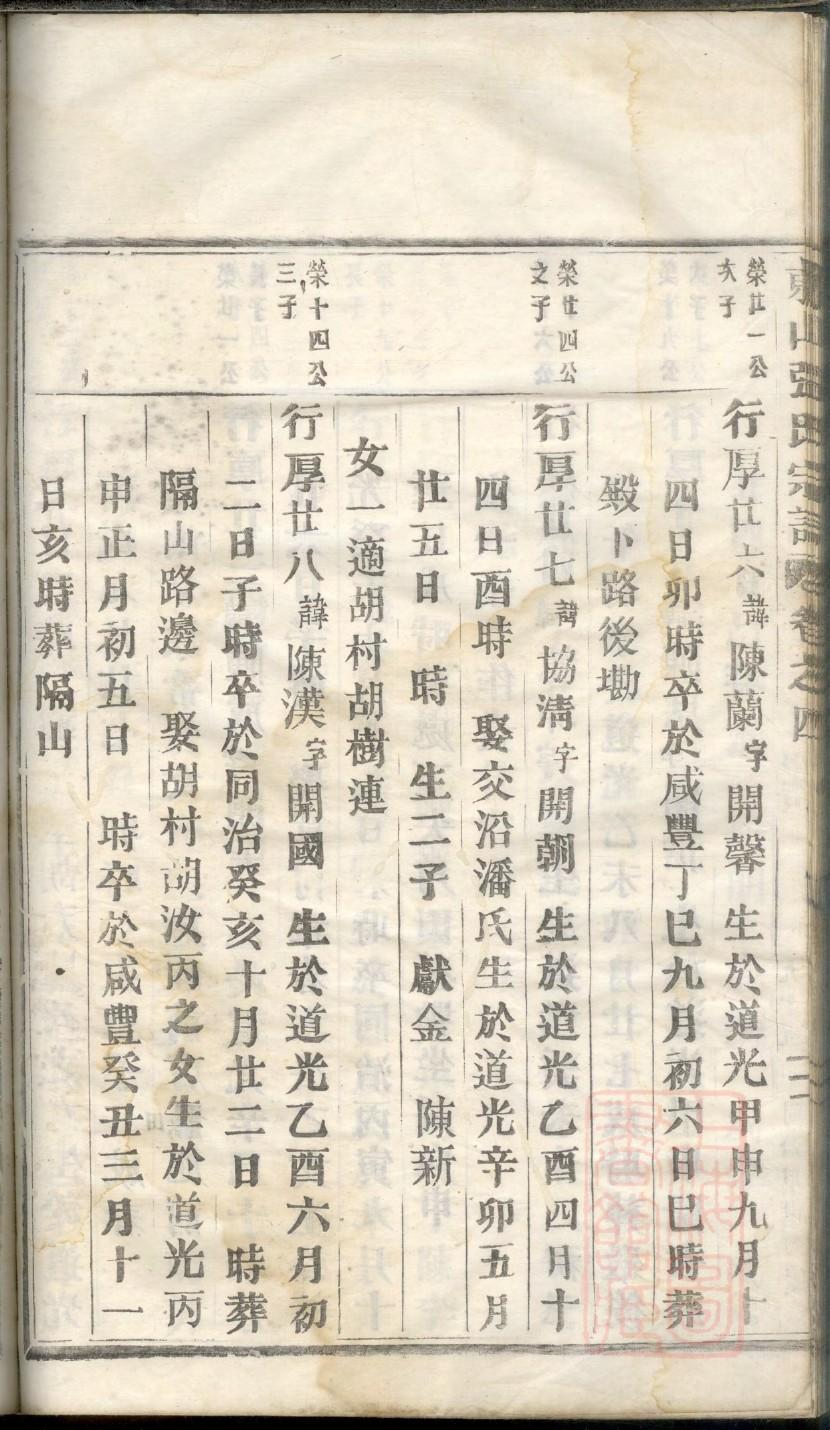 東山張氏宗譜卷之四
榮廿一公
次子
行厚廿六諱陳蘭字開馨 生於道光甲申九月十
四日卯時卒於咸豐丁巳九月初六日巳時葬
殿卜路後墈
榮廿四公
之子
行厚廿七諱協清字開朝 生於道光乙酉四月十
四日酉時 娶交沿潘氏生於道光辛卯五月
廿五日 時 生二子 獻金 陳新
女一適胡村胡樹連
榮十四公
三子
行厚廿八諱陳漢字開國 生於道光乙酉六月初
二日子時卒於同治癸亥十月廿二日 時葬
隔山路邊 娶胡村胡汝丙之女生於道光丙
申正月初五日 時卒於咸豐癸丑三月十一
日亥時葬隔山